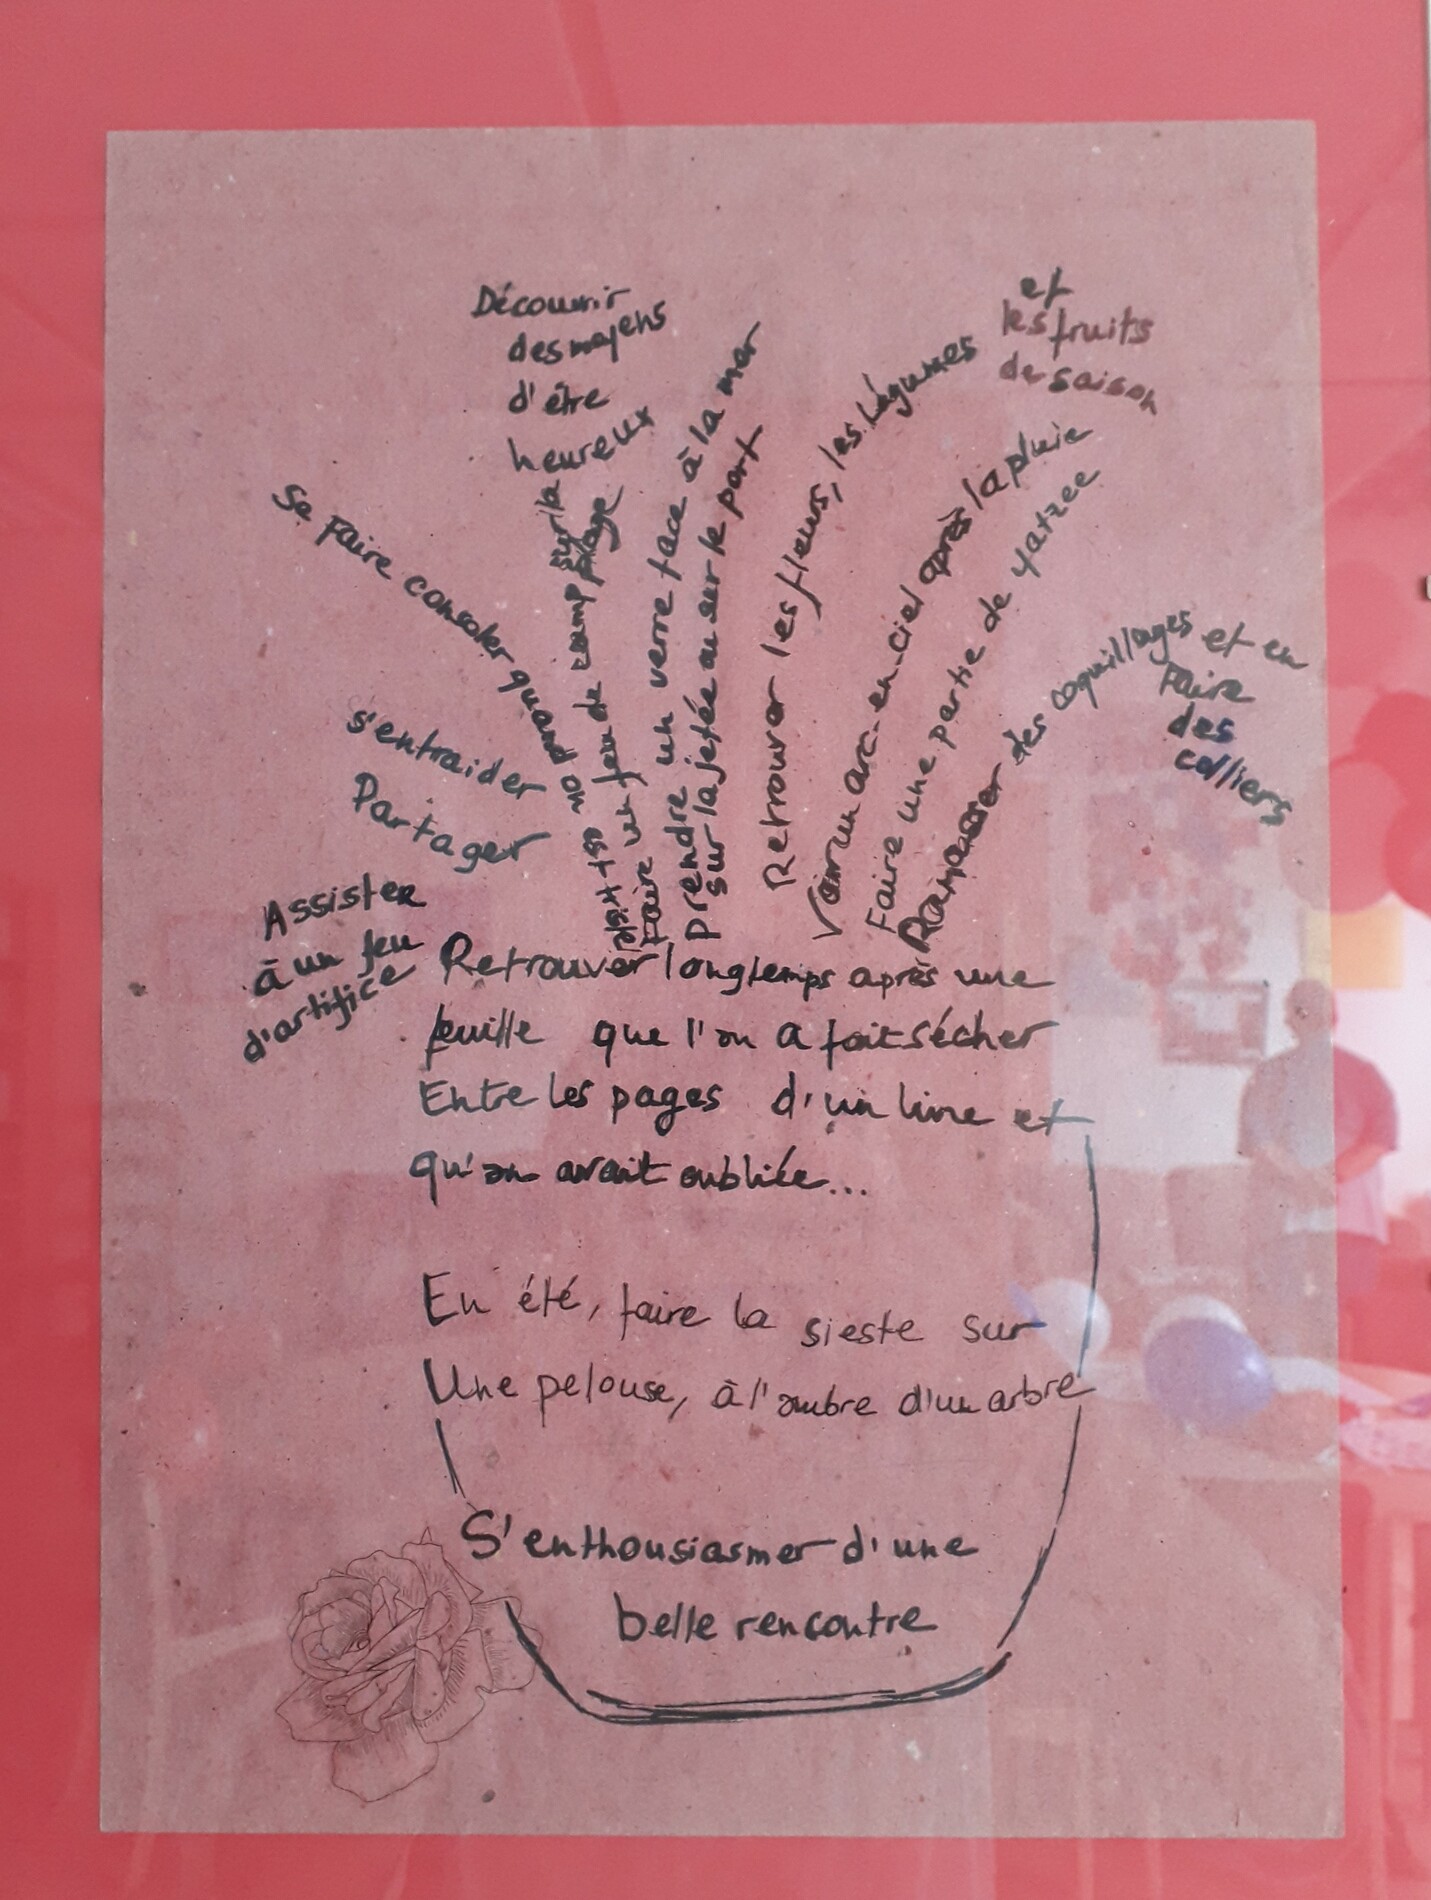 Découvrir
des moyens
d'être
heureux
Se faire consoler quand on est triste
s'entraider
Partager
Assister
à un feu
d'artifice
Faire un feu de camp sur la
plage
Prendre un verre face à la mer
sur la jetée ou sur le port
Retrouver les fleurs, les légumes
et
les fruits
de saison
Voir un arc-en-ciel après la pluie
Faire une partie de yatzee
Ramasser des coquillages et en
Faire
des
colliers
Retrouver longtemps après une
feuille que l'on a fait sécher
Entre les pages d'un livre et
qu'on avait oubliée...
En été, faire la sieste sur
Une pelouse, à l'ombre d'un arbre
S'enthousiasmer d'une
belle rencontre